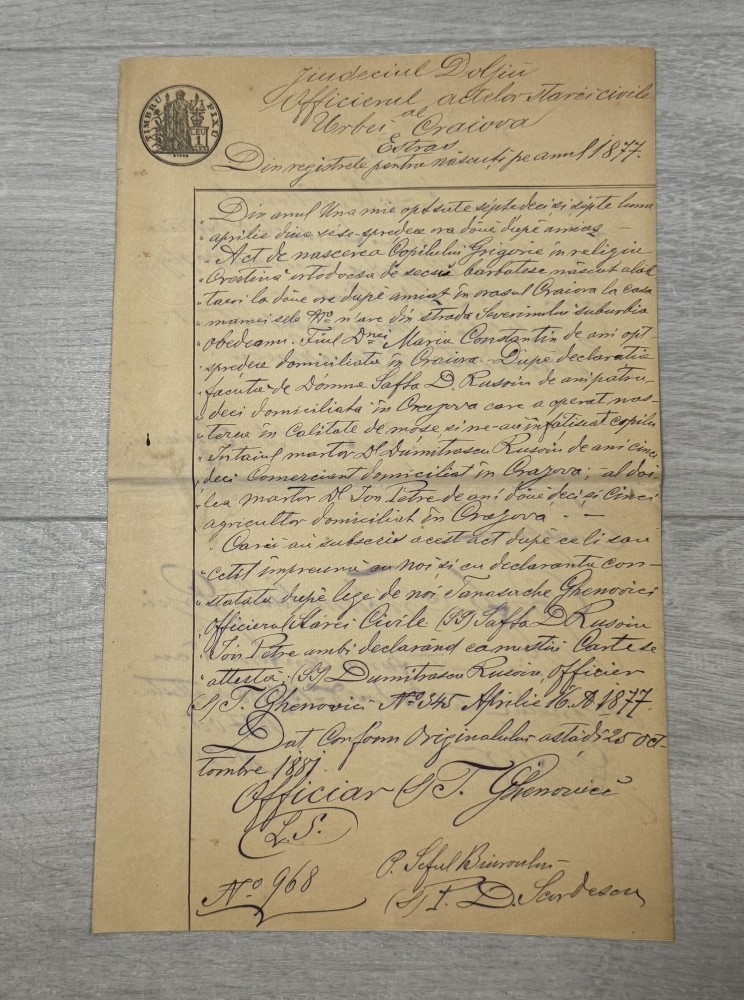 TIMBRU FIXU
LEU 1
Judeciul Doljiu
Officierul actelor starei civile
al
Urbei Craiova
Estras
Din registrele pentru născuți pe anul 1877.
Din anul Una mie opt sute șepte deci și șepte luna
aprilie diua șese-spredece ora dóue dupĕ amiaz —
Act de nascerea Copilului Grigorie în religiu
Crestină ortodocsa de secsŭ bărbătesc născut
la dóue ore dupĕ amiaż în orasul Craiova la casa
mamei sele No n'are din strada Severinului suburbia
Obedeanu. Fiul Dnei Maria Constantin de ani opt
spredece domiciliata în Craiova. Dupe declaratia
facuta de Dómna Saffta D. Rusoiu de ani patru-
deci domiciliata în Craiova care a operat nas-
terea în Calitate de móse si ne-au înfătisat copilu
Intaiul martor Dl Dumitrascu Rusoiu de ani cinci
deci Comerciant domiciliat în Craiova; al doi
lea martor Dl Ion Petre de ani dóue deci și Cinci
agricultor domiciliat în Craiova — —
Carii au subscris acest act dupĕ ce li s'au
cetit împreună cu noi si cu declaranta con-
statata dupĕ lege de noi Tanasache Ghenovici
Officierul Starei Civile (SS) Saffta D. Rusoiu
Ion Petre ambi declarând ca nu stiu Carte se
attestă; (SS) Dumitrascu Rusoiu, Officier
(S) T. Ghenovici No 345 Aprilie 16. A 1877.
Dat Conform Originalului astădi 25 Oct-
tombre 1881.
Officiar (S) T. Ghenovici
L.S.
No 968
P. Seful Biuroului
(S) I. D. Scordescu